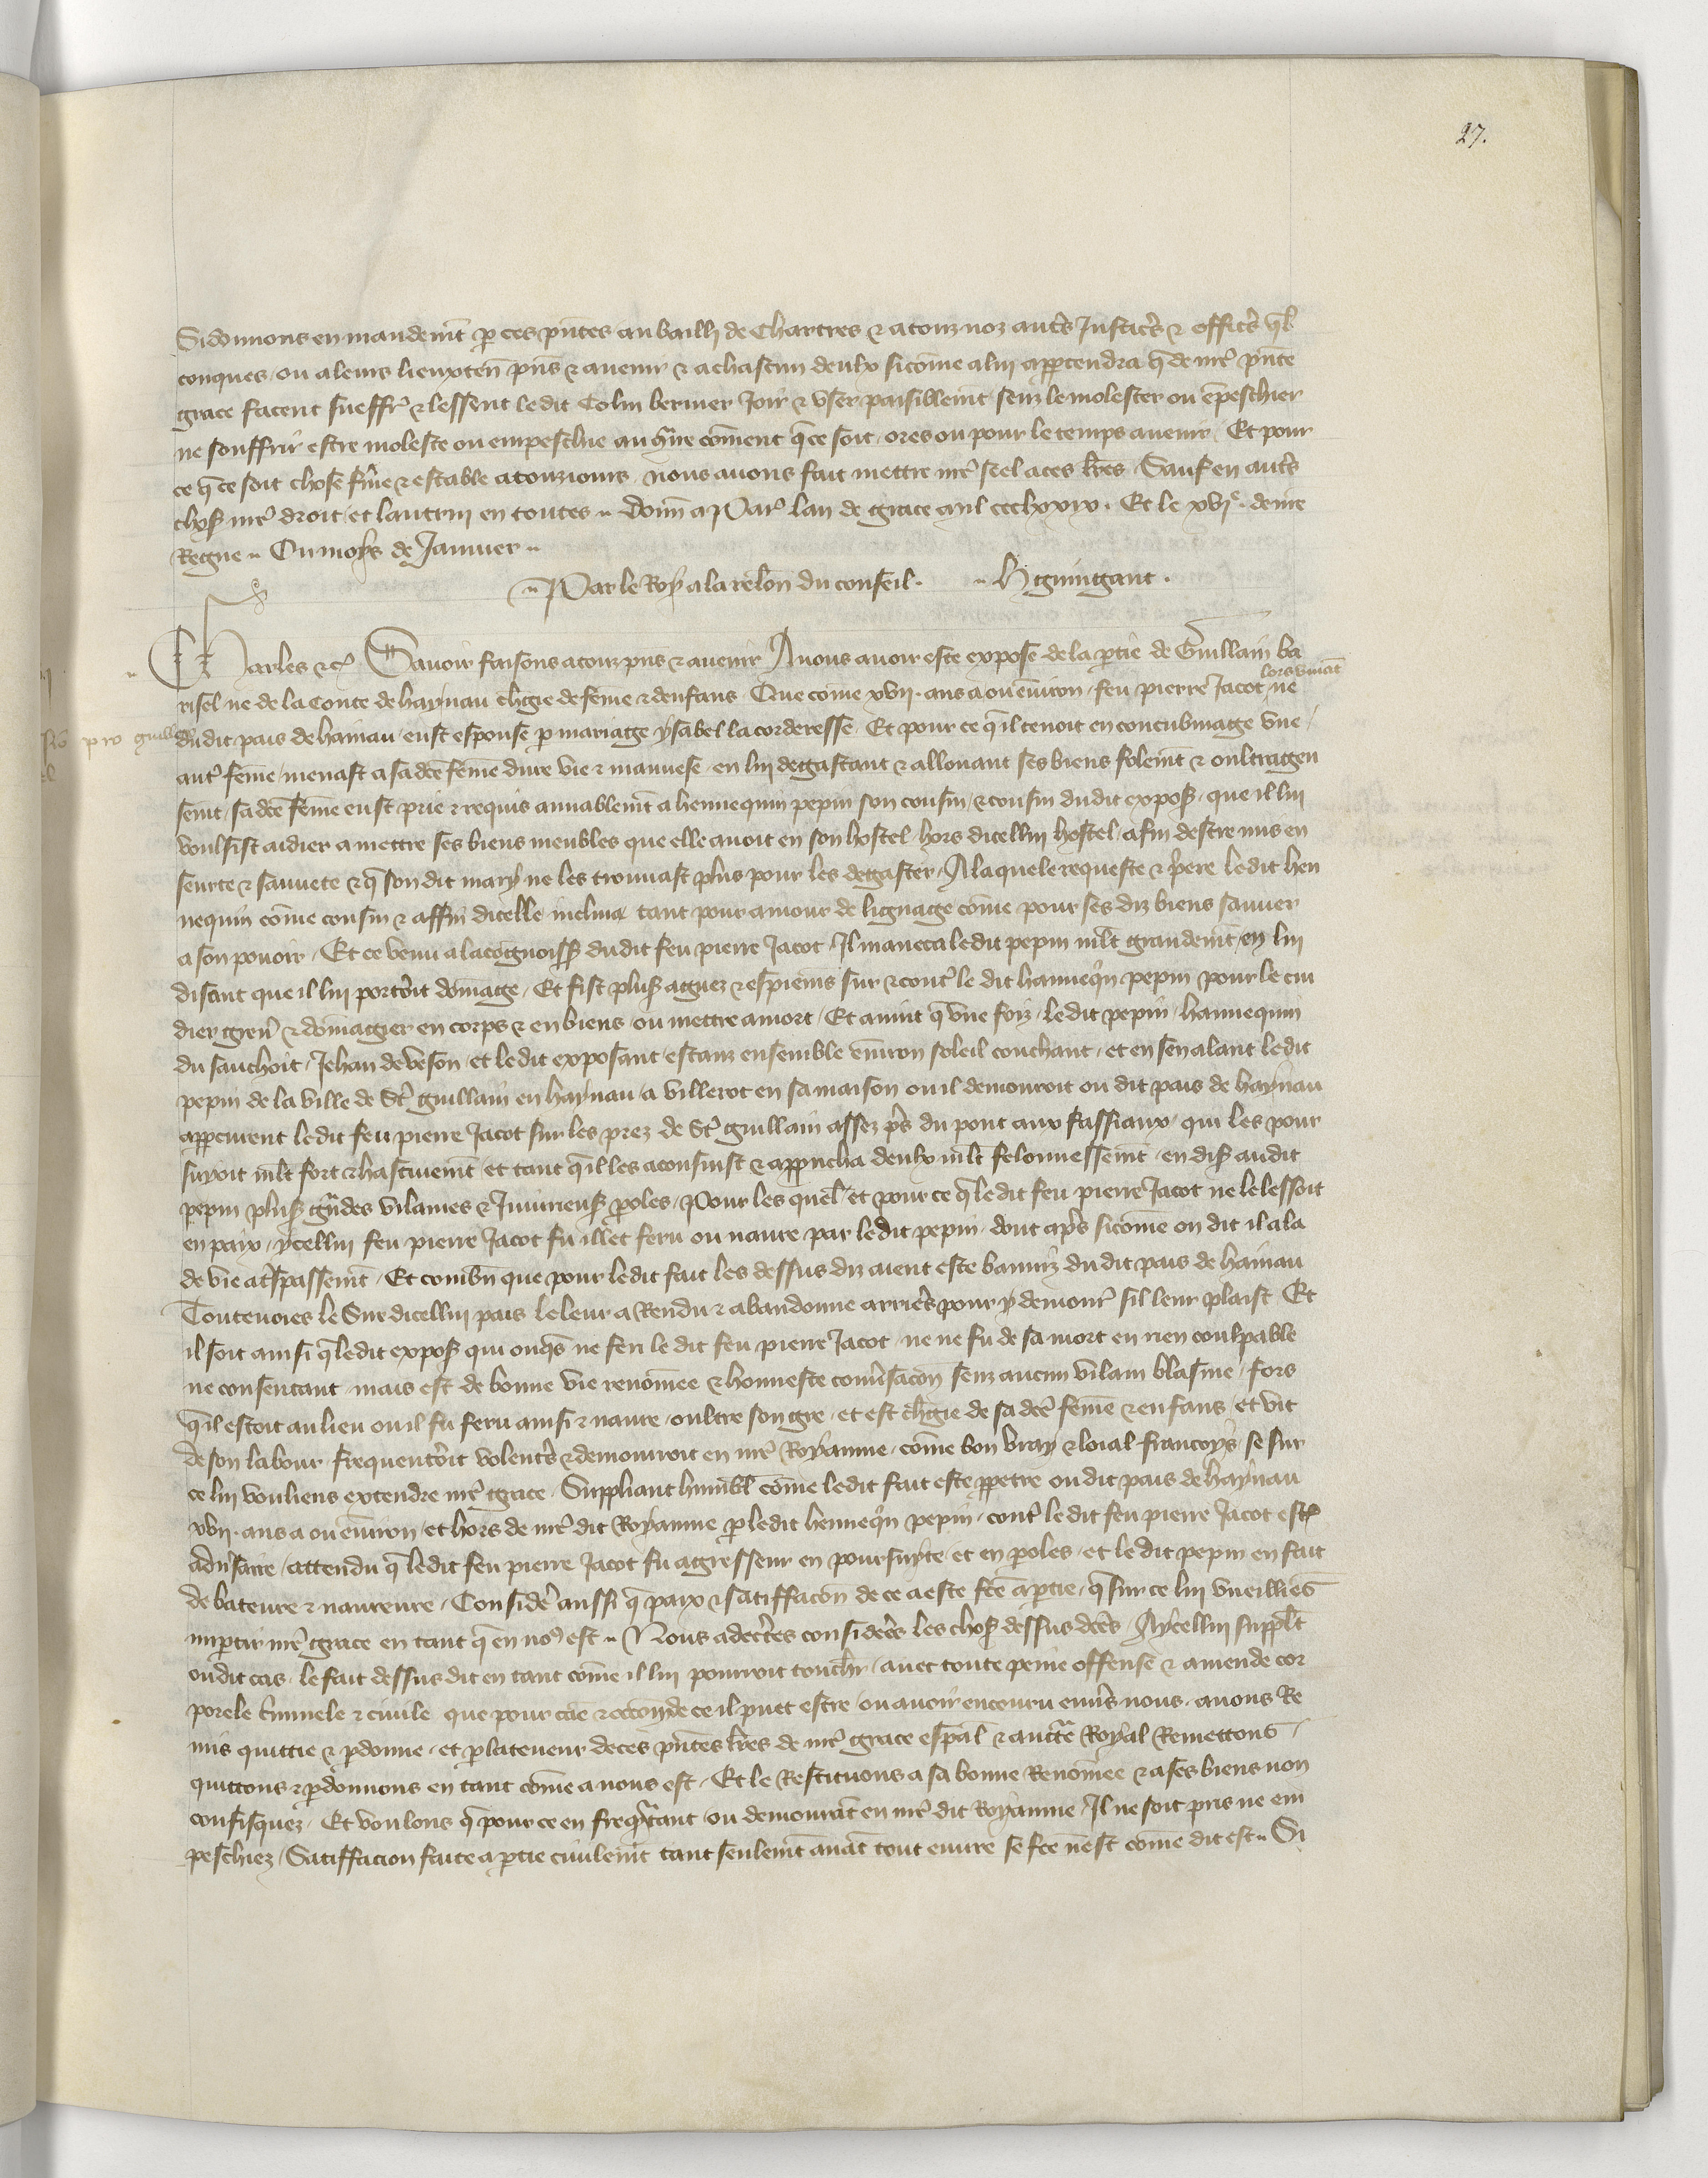 27.
Si donnons en mandemt p ces pntes au bailli de Chartres & a touz noz autres Justiciers & officers qlz
conques ou a leurs lieuxten pns & avenir & a chascun deulx sicōme a lui appertendra q de nre pnte
grace facent sueffrent & lessent le dit Colin bernier Joir & user paisiblemt senz le molester ou ēpeschier
ne souffrir estre moleste ou empeschie au gtre cōment q ce soit ores ou pour le temps avenir Et pour
ce q ce soit chose fme & estable a touziours nous avons fait mettre nre seel a ces lres Sauf en autres
choses nre droit et lautrui en toutes Donn a Par lan de grace mil ccclxxix. Et le xvie de nre
Regne Ou moys de Janvier
Par le Roy a la relon du conseil. H guingant.
Charles &c Savoir faisons a touz pns & avenir A nous avoir este expose de la ptie de Guillain ba
lors vivāt
risel ne de la Conte de haynau chgie de feme & denfans Que cōme xvii. ans a ou environ feu pierre Jacot ne
du dit pais de hainau eust espouse p mariage ysabel la corderesse Et pour ce qil tenoit en concubinage une
autre feme menast a sa dce feme dure vie & mauvese en lui degastant & allouant ses biens folemt & oultragen
semt sa dce feme eust prie & requis amiablemt a hennequin pepin son cousin & cousin dudit expos que il lui
voulsist aidier a mettre ses biens meubles que elle avoit en son hostel hors dicellui hostel afin destre mis en
seurte & sauvete & q son dit mary ne les trouvast plus pour les degaster A laquele requeste & priere le dit hen
nequin cōme cousin & affin dicelle inclina tant pour amour de lignage cōme pour ses diz biens sauver
a son povoir Et ce venu a la cognoiss dudit feu pierre Jacot Il maneca le dit pepin mlt grandemt en lui
disant que il lui porteroit dōmage Et fist plus aguez & espiemens sur & contre le dit hannequin pepin pour le cui
dier grever & dōmagier en corps & en biens ou mettre a mort Et avint q une foiz le dit pepin hannequin
du sauchoit Jehan de veson et le dit exposant estanz ensemble environ soleil couchant et en sen alant le dit
pepin de la ville de St guillain en haynau a villerot en sa maison ou il demouroit ou dit pais de haynau
appceurent le dit feu pierre Jacot sur les prez de St guillain assez pres du pont aux fassiaux qui les pour
suyoit mlt fort & hastivemt et tant qil les aconsuist & approucha deulx mlt felonnessemt en dis audit
pepin plus grādes vilanies & Iniurieus poles Pour les quelx et pour ce q le dit feu pierre Jacot ne le lessoit
en paix ycellui feu pierre Jacot fu illec feru ou navre par le dit pepin dont aps sicōme on dit il ala
de vie a tspassemt Et combn que pour le dit fait les dessus diz aient este banniz du dit pais de hainau
Toutevoies le Sire dicellui pais le leur a Rendu & abandonne arriers pour y demourer sil leur plaist Et
il soit ainsi q le dit expos qui onqs ne feri le dit feu pierre Jacot ne ne fu de sa mort en rien coulpable
ne consentant mais est de bonne vie renōmee & honneste conversacon senz aucun vilain blasme fors
qil estoit au lieu ou il fu feru ainsi & navre oultre son gre et est chgie de sa dce feme & enfans et vit
de son labour frequenteroit volentrs & demourroit en nre Royaume cōme bon vray & loial francoys se sur
ce lui vouliens extendre nre grace Suppliant humbl cōme le dit fait este ppetre ou dit pais de haynau
xvii. ans a ou environ et hors de nre dit Royaume p le dit hennequin pepin contre le dit feu pierre Jacot est
adversaire attendu q le dit feu pierre Jacot fu agresseur en poursuyte et en poles et le dit pepin en fait
de bateure & navreure Consider aussi q paix & satiffacon de ce a este fce a ptie q sur ce lui vueilliēs
impartir nre grace en tant q en nous est Nous adcertes consideres les chos dessus dces A ycellui supplt
ou dit cas le fait dessus dit en tant cōme il lui pourroit touchr avec toute peine offense & amende cor
porele criminele & civile que pour cāe & occōn de ce il puet estre ou avoir encouru envers nous avons Re
mis quittie & pdonne et p la teneur de ces pntes lres de nre grace espal & auctte Royal Remettons
quittons & pdonnons en tant cōme a nous est Et le Restituons a sa bonne Renōmee & a ses biens non
confisquez Et voulons q pour ce en freqntant ou demourāt en nre dit Royaume Il ne soit pris ne em
peschiez Satiffacion faite a ptie civilemt tant seulemt avāt tout euvre se fce nest cōme dit est Si